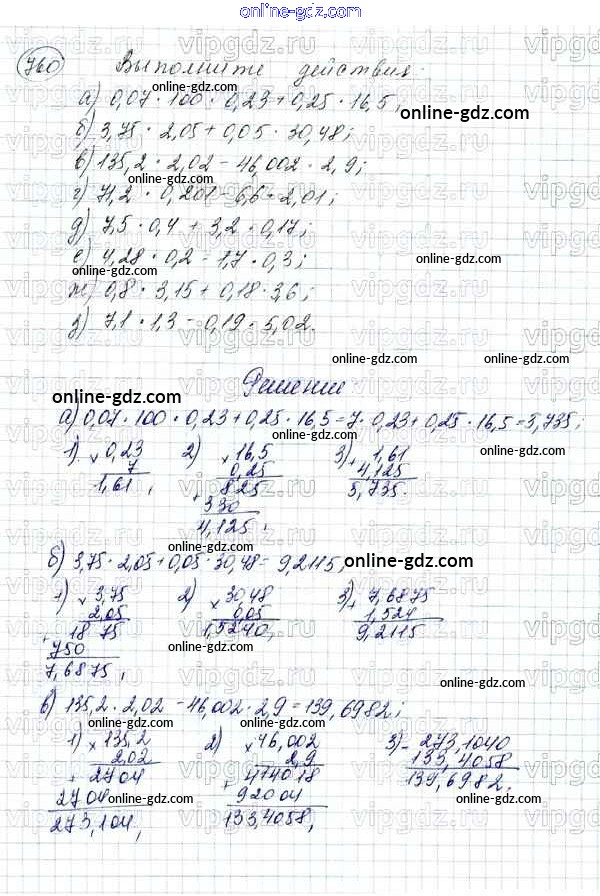 online-gdz.com
760 Выполните действия:
а) 0,07 · 100 · 0,23 + 0,25 · 16,5;
online-gdz.com
б) 3,75 · 2,05 + 0,05 · 30,48;
в) 135,2 · 2,02 - 46,002 · 2,9;
г) 71,2 · 0,201 - 6,6 · 2,01;
online-gdz.com
д) 7,5 · 0,4 + 3,2 · 0,17;
е) 4,28 · 0,2 - 1,7 · 0,3;
online-gdz.com
ж) 0,8 · 3,15 + 0,18 · 3,6;
з) 7,1 · 1,3 - 0,19 · 5,02.
online-gdz.com
Решение
online-gdz.com
а) 0,07 · 100 · 0,23 + 0,25 · 16,5 = 7 · 0,23 + 0,25 · 16,5 = 5,735;
1) × 0,23 2) × 16,5 3) + 1,61
7 0,25 4,125
1,61, + 825 5,735.
330
4,125;
online-gdz.com
б) 3,75 · 2,05 + 0,05 · 30,48 = 9,2115;
online-gdz.com
1) × 3,75 2) × 30,48 3) + 7,6875
2,05 0,05 1,524
+ 18 75 1,5240, 9,2115
750
7,6875,
online-gdz.com
online-gdz.com
в) 135,2 · 2,02 - 46,002 · 2,9 = 139,6982;
online-gdz.com
1) × 135,2 2) × 46,002 3) - 273,1040
2,02 2,9 133,4058
+ 2704 + 414018 139,6982.
2704 92004
273,104, 133,4058,
online-gdz.com
online-gdz.com
online-gdz.com